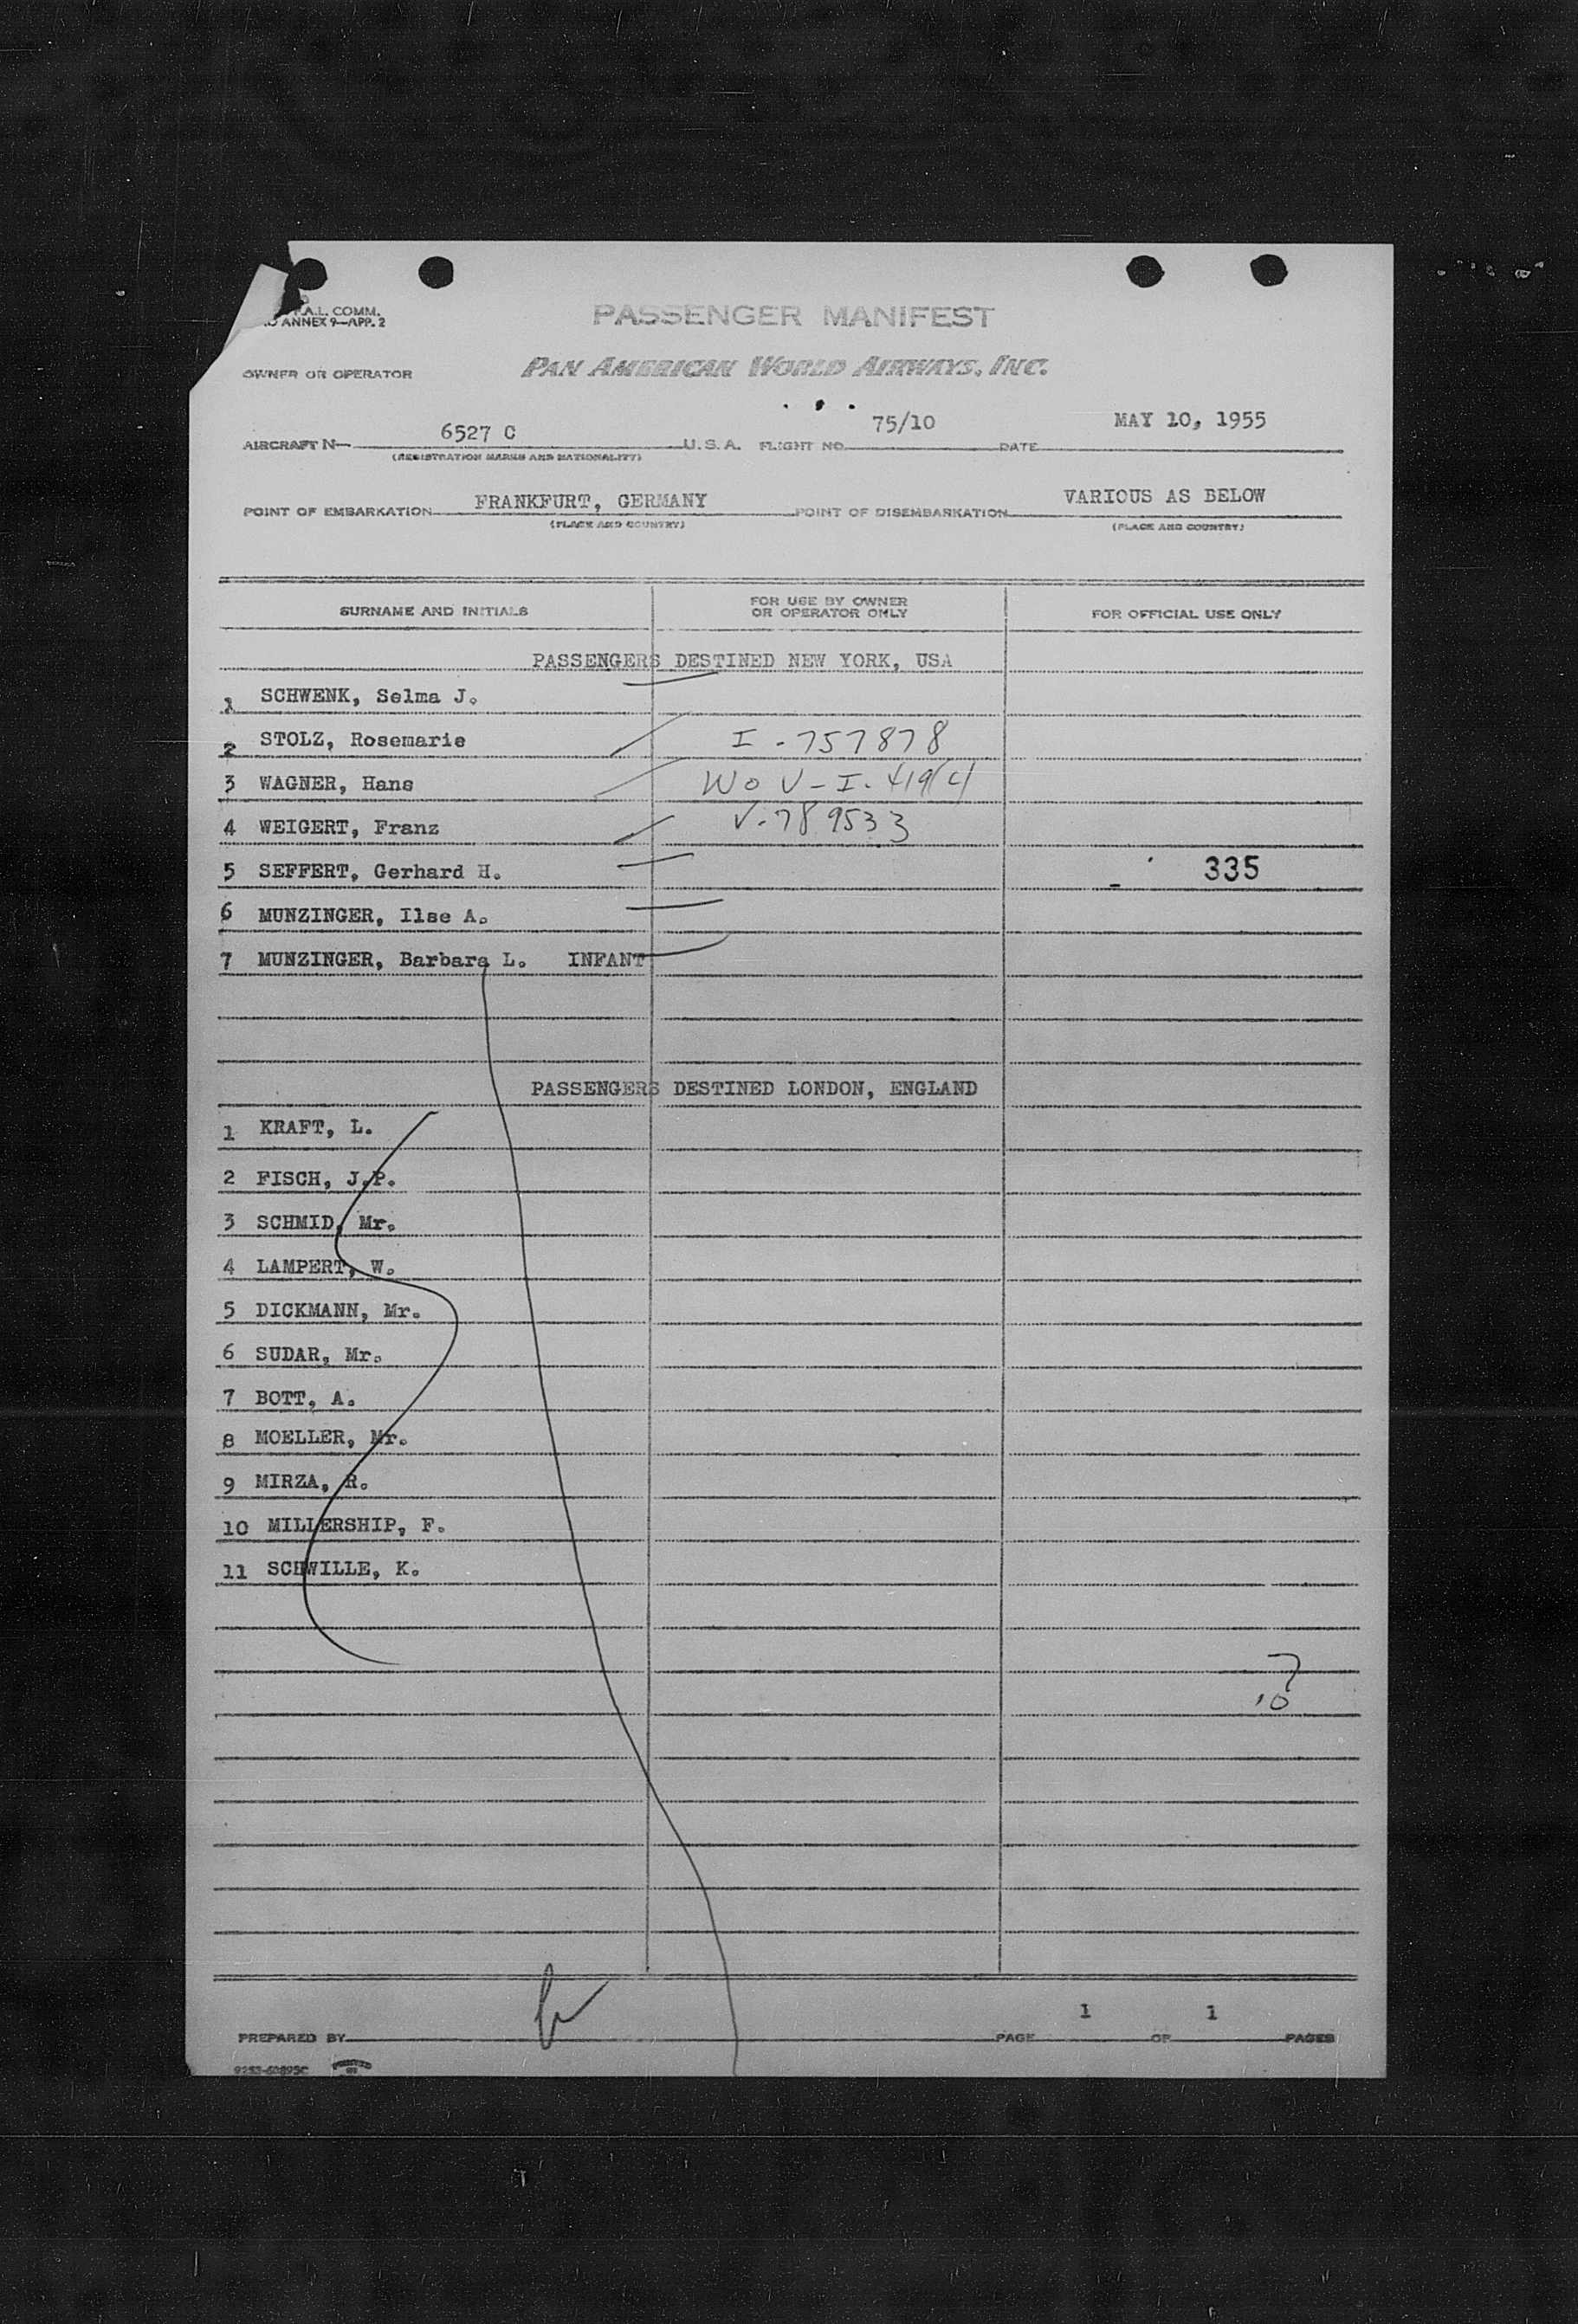 F.A.L. COMM.
ANNEX 9—APP. 2
PASSENGER MANIFEST
OWNER OR OPERATOR PAN AMERICAN WORLD AIRWAYS, INC.
AIRCRAFT N— 6527 C U.S.A. FLIGHT NO. 75/10 DATE MAY 10, 1955
(REGISTRATION MARKS AND NATIONALITY)
POINT OF EMBARKATION FRANKFURT, GERMANY POINT OF DISEMBARKATION VARIOUS AS BELOW
(PLACE AND COUNTRY) (PLACE AND COUNTRY)
SURNAME AND INITIALS FOR USE BY OWNER OR OPERATOR ONLY FOR OFFICIAL USE ONLY
PASSENGERS DESTINED NEW YORK, USA
1 SCHWENK, Selma J.
2 STOLZ, Rosemarie I - 757878
3 WAGNER, Hans WO V-I-
4 WEIGERT, Franz V-789533
5 SEFFERT, Gerhard H. 335
6 MUNZINGER, Ilse A.
7 MUNZINGER, Barbara L. INFANT
PASSENGERS DESTINED LONDON, ENGLAND
1 KRAFT, L.
2 FISCH, J.P.
3 SCHMID, Mr.
4 LAMPERT, W.
5 DICKMANN, Mr.
6 SUDAR, Mr.
7 BOTT, A.
8 MOELLER, Mr.
9 MIRZA, R.
10 MILLERSHIP, F.
11 SCHWILLE, K.
7
10
PREPARED BY PAGE 1 OF 1 PAGES